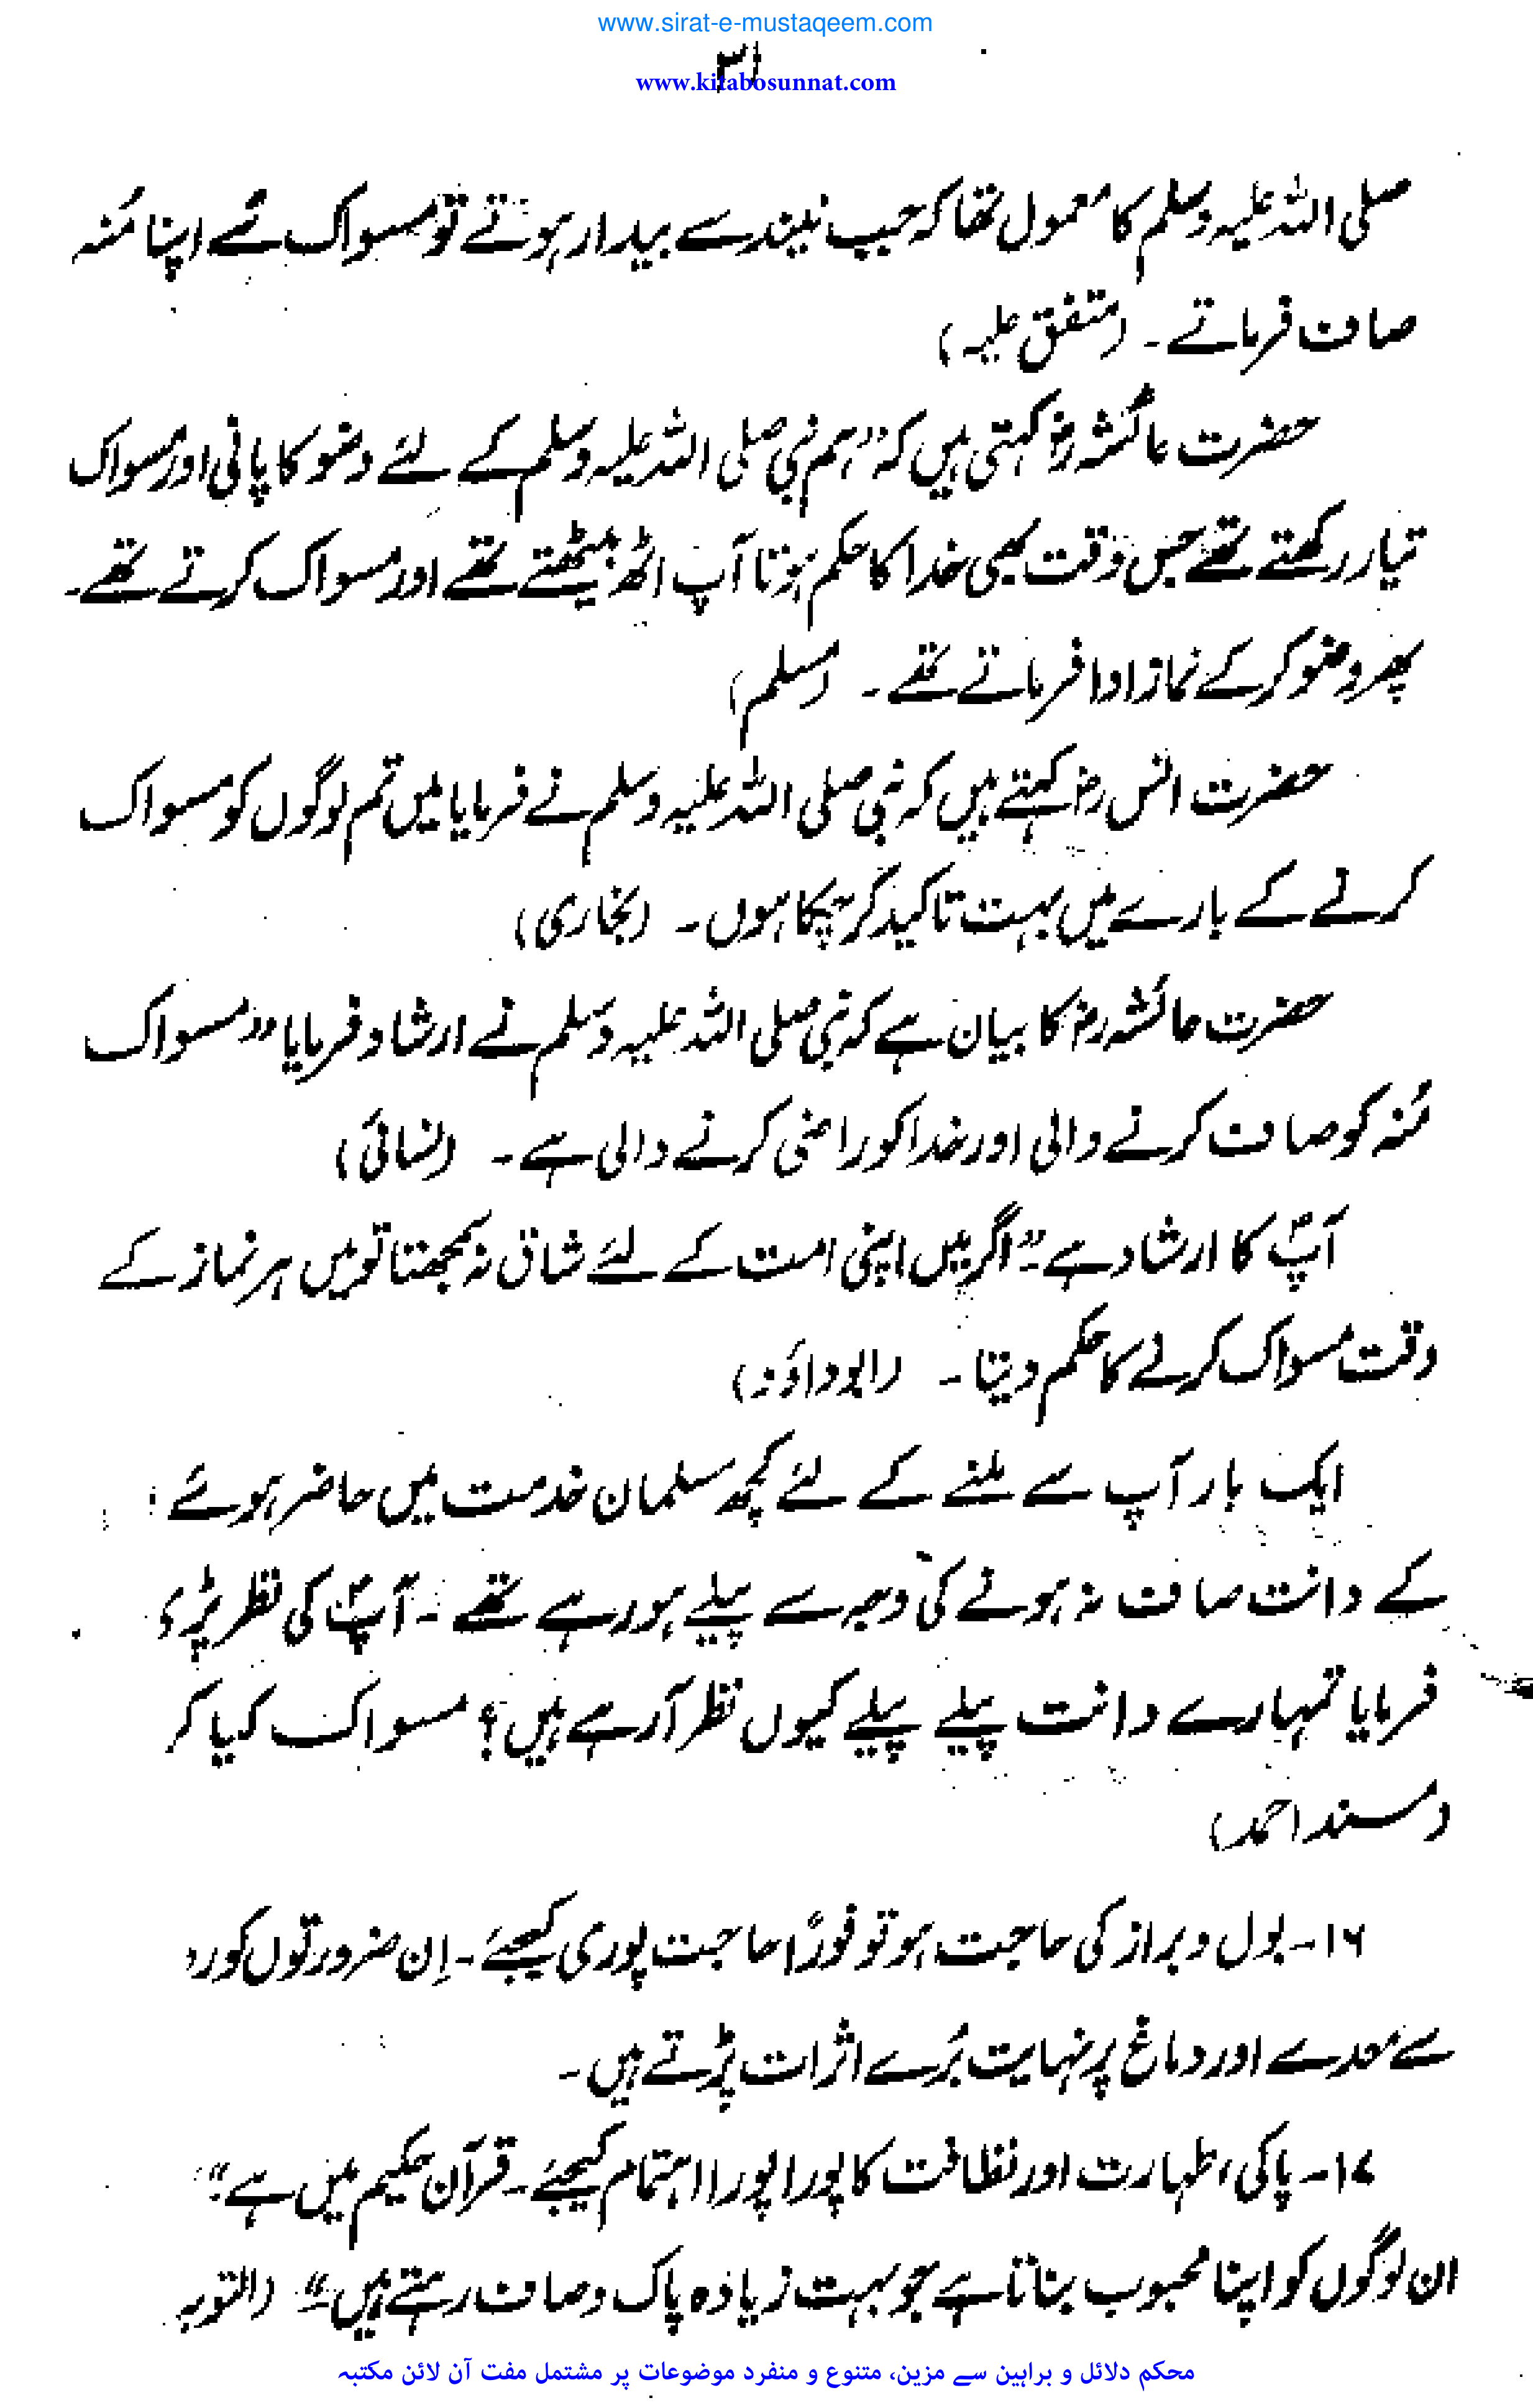 www.sirat-e-mustaqeem.com
۳۱
www.kitabosunnat.com
صلی اللہ علیہ وسلم کا معمول تھا کہ جب نیند سے بیدار ہوتے تو مسواک سے اپنا مُنہ
صاف فرماتے۔ (متفق علیہ)
حضرت عائشہ رضؓ کہتی ہیں کہ ”ہم نبی صلی اللہ علیہ وسلم کے لئے وضو کا پانی اور مسواک
تیار رکھتے تھے جس وقت بھی خدا کا حکم ہوتا آپ اٹھ بیٹھتے تھے اور مسواک کرتے تھے۔
پھر وضو کر کے نماز ادا فرماتے تھے۔ (مسلم)
حضرت انس رضؓ کہتے ہیں کہ نبی صلی اللہ علیہ وسلم نے فرمایا میں تم لوگوں کو مسواک
کرنے کے بارے میں بہت تاکید کر چکا ہوں۔ (بخاری)
حضرت عائشہ رضؓ کا بیان ہے کہ نبی صلی اللہ علیہ وسلم نے ارشاد فرمایا ”مسواک
مُنہ کو صاف کرنے والی اور خدا کو راضی کرنے والی ہے۔ (نسائی)
آپؐ کا ارشاد ہے۔ ”اگر میں اپنی امت کے لئے شاق نہ سمجھتا تو میں ہر نماز کے
وقت مسواک کرنے کا حکم دیتا۔ (ابوداؤد)
ایک بار آپ سے ملنے کے لئے کچھ مسلمان خدمت میں حاضر ہوئے
کے دانت صاف نہ ہونے کی وجہ سے پیلے ہو رہے تھے۔ آپؐ کی نظر پڑی
فرمایا تمہارے دانت پیلے پیلے کیوں نظر آرہے ہیں؟ مسواک کیا کر
(مسند احمد)
۱۶۔ بول و براز کی حاجت ہو تو فوراً حاجت پوری کیجئے۔ اِن ضرورتوں کو
سے معدے اور دماغ پر نہایت بُرے اثرات پڑتے ہیں۔
۱۷۔ پاکی، طہارت اور نظافت کا پورا پورا اہتمام کیجئے۔ قرآن حکیم میں ہے ”
ان لوگوں کو اپنا محبوب بناتا ہے جو بہت زیادہ پاک و صاف رہتے ہیں۔“ (التوبہ
محکم دلائل و براہین سے مزین، متنوع و منفرد موضوعات پر مشتمل مفت آن لائن مکتبہ